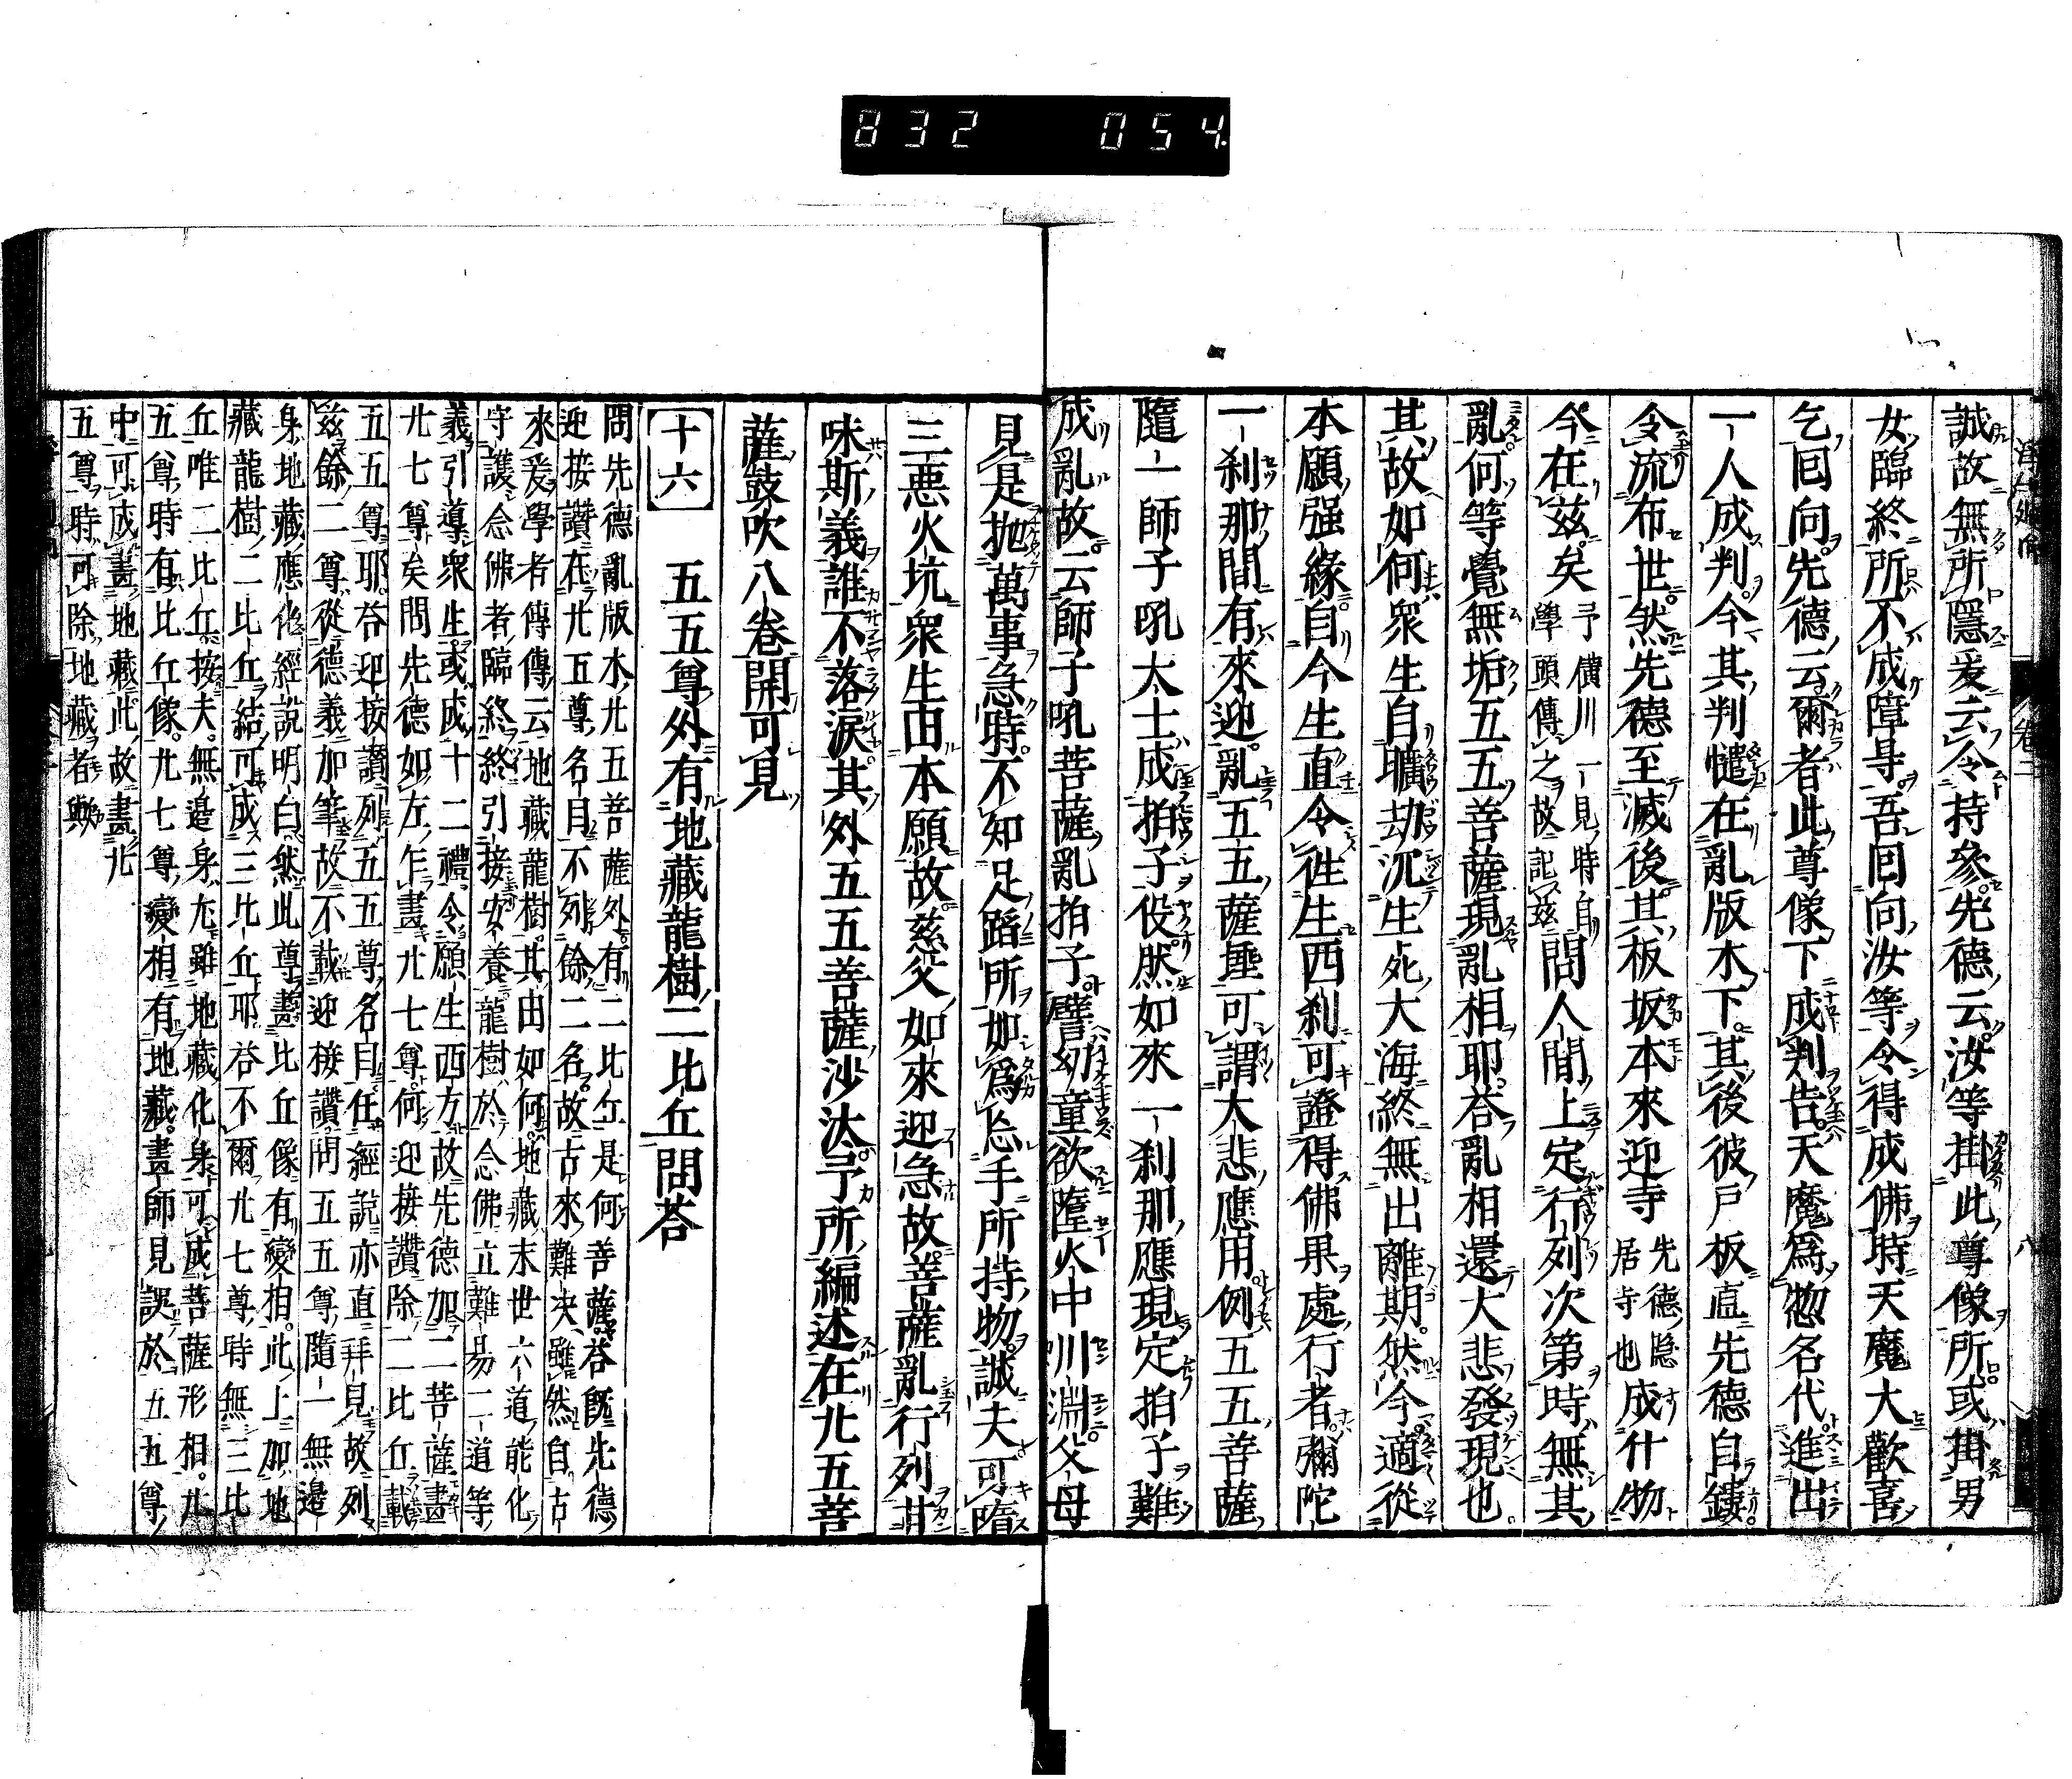 832 054
誠故無所隱爰云令持參先德云汝等掛此尊像所或掛男
女臨終所不成障㝵吾囘向汝等令得成佛時天魔大歡喜
乞囘向先德云爾者此尊像下成判告天魔爲惣名代進出
一人成判今其判慥在亂版木下其後彼戸板直先德自鏤
令流布世然先德至滅後其板坂本來迎寺先德隱居寺也成什物
今在茲矣予橫川一見時自學頭傳之故記茲問人間上定行列次第時無其
亂何等覺無垢五五菩薩現亂相耶荅亂相還大悲發現也
其故如何衆生自曠劫沉生死大海終無出離期然今適從
本願强緣自今生直令徃生西刹可證得佛果處行者彌陀
一刹那間有來迎亂五五薩埵可謂大悲應用例五五菩薩
隨一師子吼大士成拍子役然如來一刹那應現定拍子難
成亂故云師子吼菩薩亂拍子譬幼童欲墮火中川淵父母
見是抛萬事急時不知足蹈所如爲忘手所持物誠夫可隨
三惡火坑衆生由本願故慈父如來迎急故菩薩亂行列其
味斯義誰不落淚其外五五菩薩沙汰予所編述在廿五菩
薩鼓吹八卷開可見
十六 五五尊外有地藏龍樹二比丘問荅
問先德亂版木廿五菩薩外有二比丘是何菩薩荅旣先德
迎接讚在廿五尊名目不列餘二名故古來難决雖然自古
來爰學者傳傳云地藏龍樹其由如何地藏末世六道能化
守護念佛者臨終終引接安養龍樹於念佛立難易二道等
義引導衆生或成十二禮令願生西方故先德加二菩薩畫
廿七尊矣問先德如左乍畫廿七尊何迎接讚除二比丘載
五五尊耶荅迎接讚列五五尊名目任經說亦直拜見故列
茲餘二尊從德義加筆故不載迎接讚問五五尊隨一無邊
身地藏應化經說明白然此尊畫比丘像有變相此上加地
藏龍樹二比丘結可成三比丘耶荅不爾廿七尊時無三比
丘唯二比丘按夫無邊身尢雖地藏化身可成菩薩形相廿
五尊時有比丘像廿七尊變相有地藏畫師見誤於五五尊
中可成畫地藏此故畫廿
五尊時可除地藏者歟